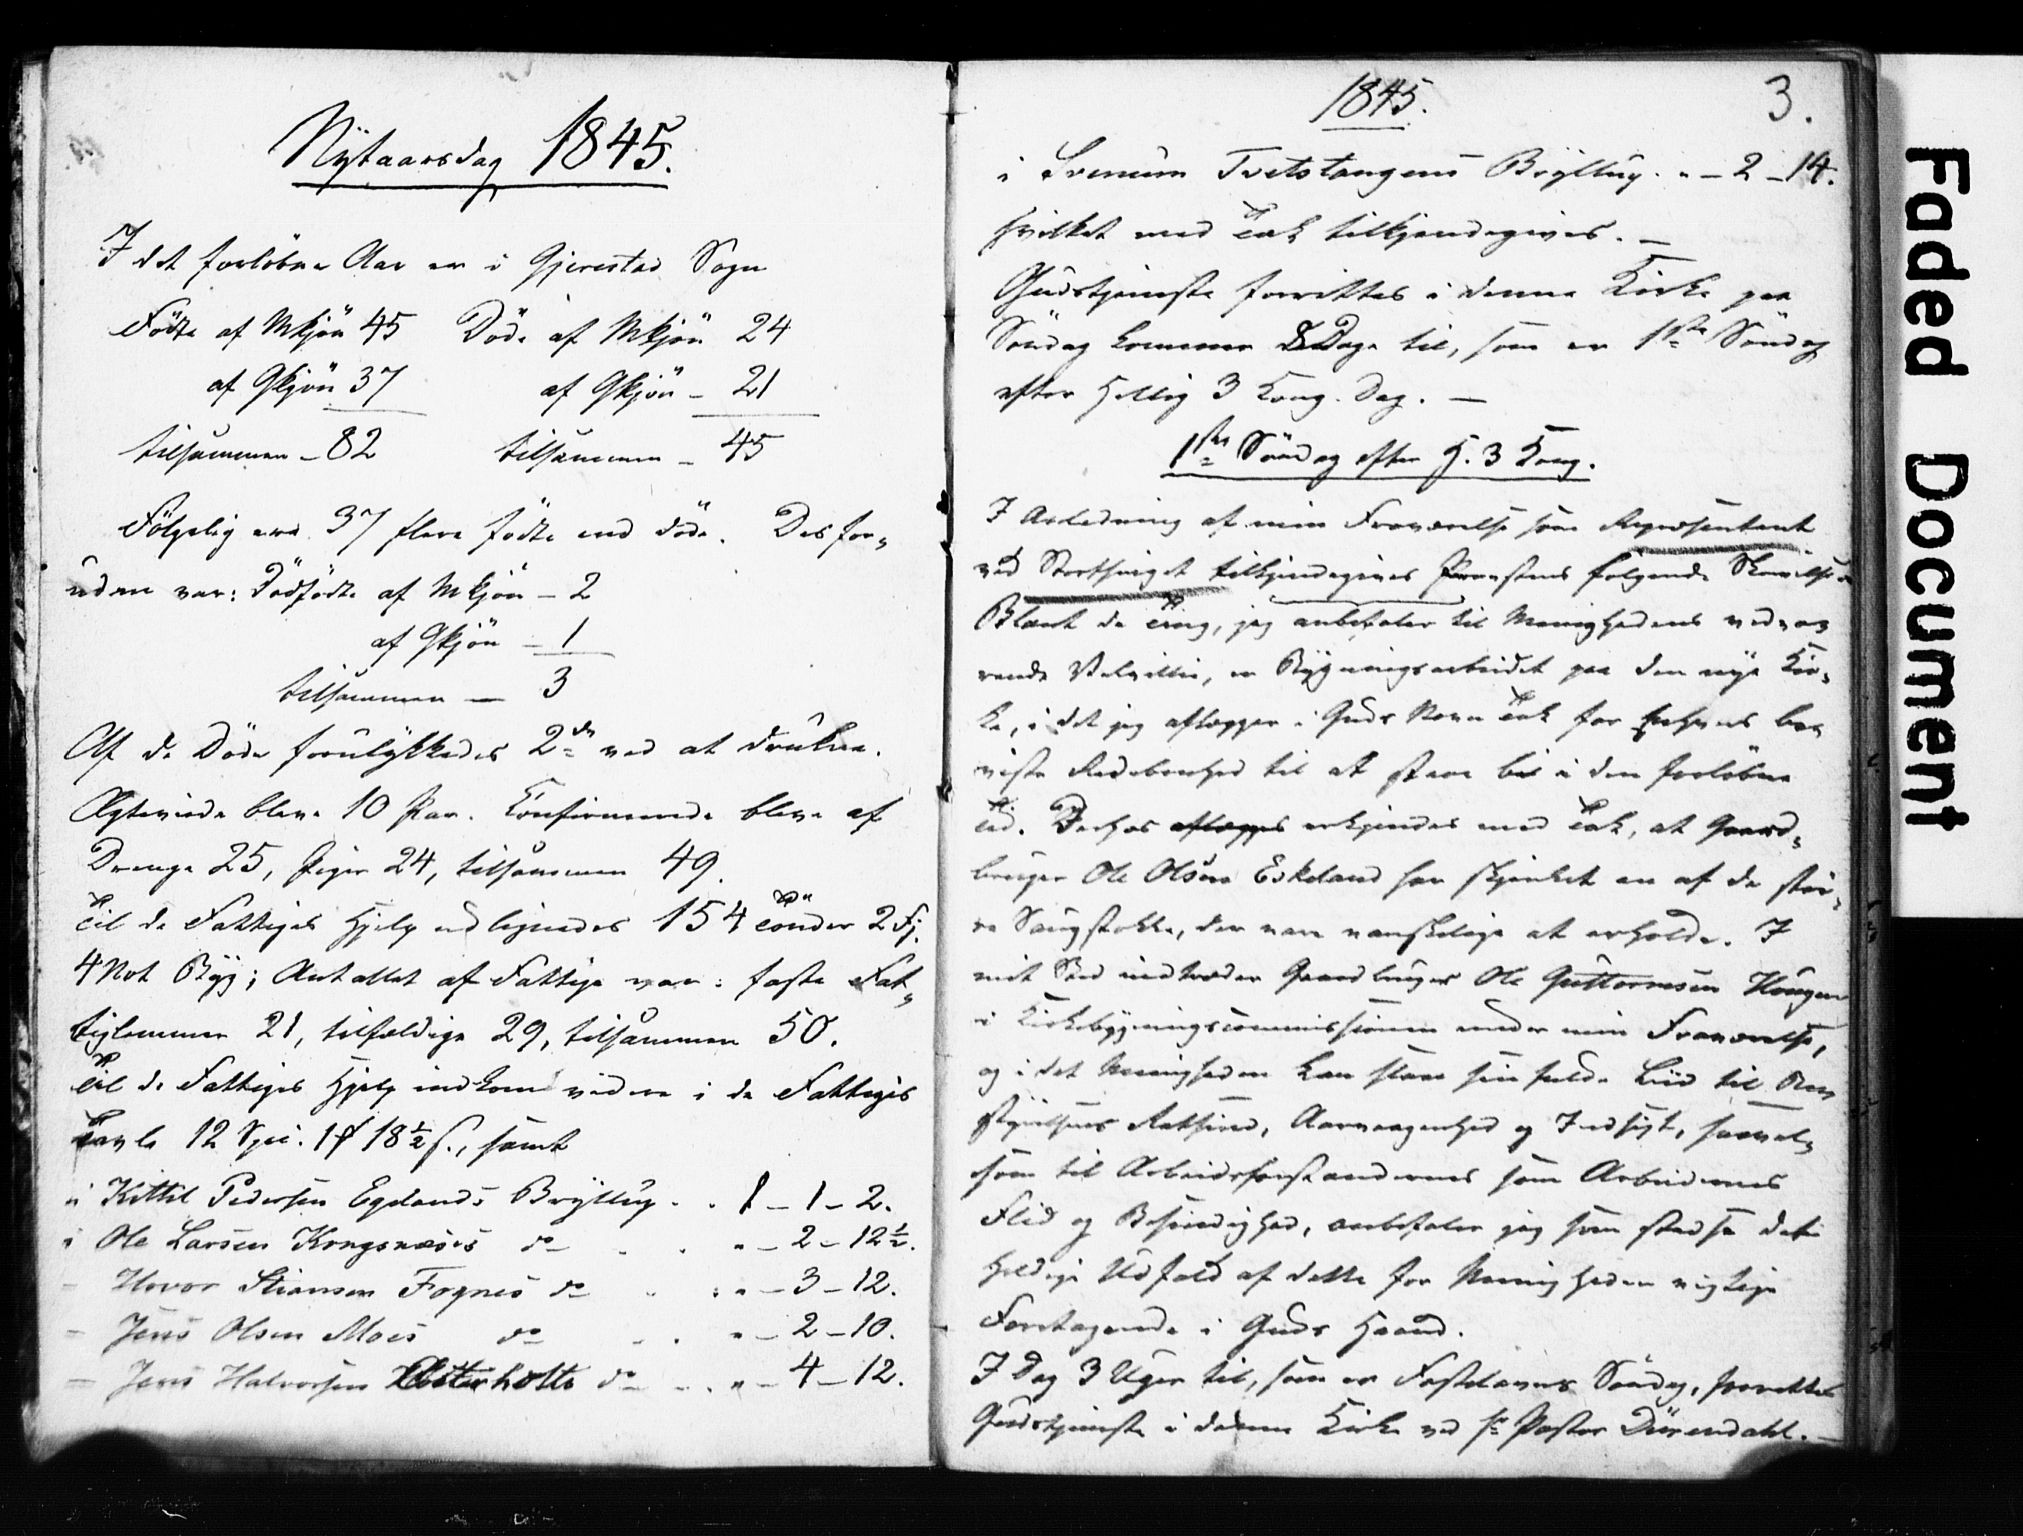 Nytaarsdag 1845.
I det forløbne Aar er i Gjerestad Sogn
Födte af Mkjön 45 Döde af Mkjön 24
af Qkjön 37 af Qkjön - 21
tilsammen - 82 tilsammen - 45
Fölgelig ere 37 flere födte end döde. Desfor-
uden var: Dödfödte af Mkjön - 2
af Qkjön - 1
tilsammen - 3
Af de Döde forulykkedes 2de ved at drukne.
Ægteviede bleve 10 Par. Confirmerede bleve af
Drenge 25, Piger 24, tilsammen 49.
Til de Fattiges Hjelp udlignedes 154 Tönder 2 Fj.
4 Not Byg; Antallet af Fattige var: faste Fat-
tiglemmer 21, tilfældige 29, tilsammen 50.
Til de Fattiges Hjelp indkom videre i de Fattiges
Tavle 12 Spd. 1 18½ s., samt
i Kittil Pedersen Egelands Bryllup . . 1 - 1 - 2.
i Ole Larsen Kongsnæses do . . " - 2 - 12½.
- Hovor Stiansen Fognes do . . " - 3 - 12.
- Jens Olsen Moes do . . " - 2 - 10.
- Jens Halvorsen Østerholts do . . " - 4 - 12.
1845. 3.
i Svenum Tvetstangens Bryllup . " - 2 - 14.
hvilket med Tak tilkjendegives. -
Gudstjeneste forrettes i denne Kirke paa
Söndag kommer 8 Dage til, som er 1ste Söndag
efter Hellig 3 Kong. Dag. -
1ste Söndag efter H. 3 Kong.
I Anledning af min Fraværelse som Repræsentant
ved Storthinget tilkjendegives Præstens følgende
Blant de Ting, jeg anbefaler til Menighedens vedva-
rende Velvillie, er Bygningsarbeidet paa den nye Kir-
ke, i det jeg aflægger i Guds Navn Tak for be-
viste Redebonhed til at staae bi i den forløbne
Tid. Derhos aflægges erkjendes med Tak, at Gaard-
bruger Ole Olsen Eskeland har skjenket en af de stör-
re Saugstokke, der vare vanskelige at erholde. I
mit Sted indtræder Gaardbruger Ole Guttormsen Haugen
i Kirkebygningscommissionen under min Fraværelse,
og i det Menigheden kan have sin fulde Lid til Be-
styrelsens Retsind, Aarvaagenhed og Indsigt, saavel-
som til Arbeidsforstandernes som Arbeidernes
Flid og Behændighed, anbefaler jeg som stedse det
heldige Udfald af dette for Menigheden vigtige
Foretagende i Guds Haand.
I Dag 3 Uger til, som er Fastelavns Söndag, forrettes
Gudstjeneste i denne Kirke ved Hr Pastor Dürendahl. -
Faded Document